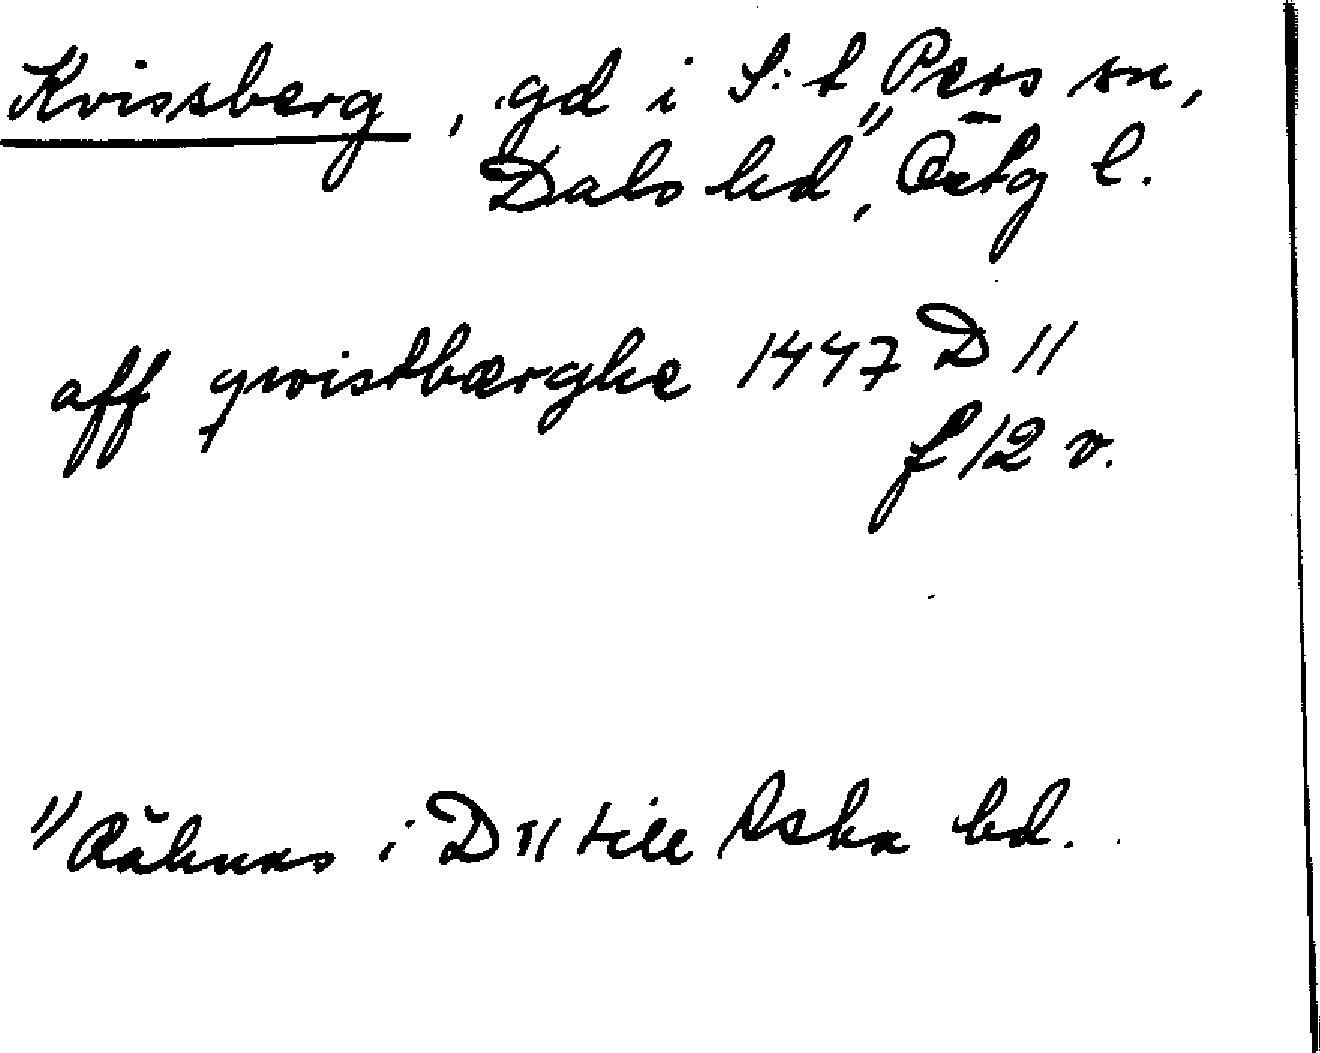 Kvissberg, gd i S:t Pers sn,
Dals hd¹⁾, Östg l.
aff qwistbærghe 1447 D 11
f 12 v.
¹⁾ Räknas i D 11 till Aska hd.